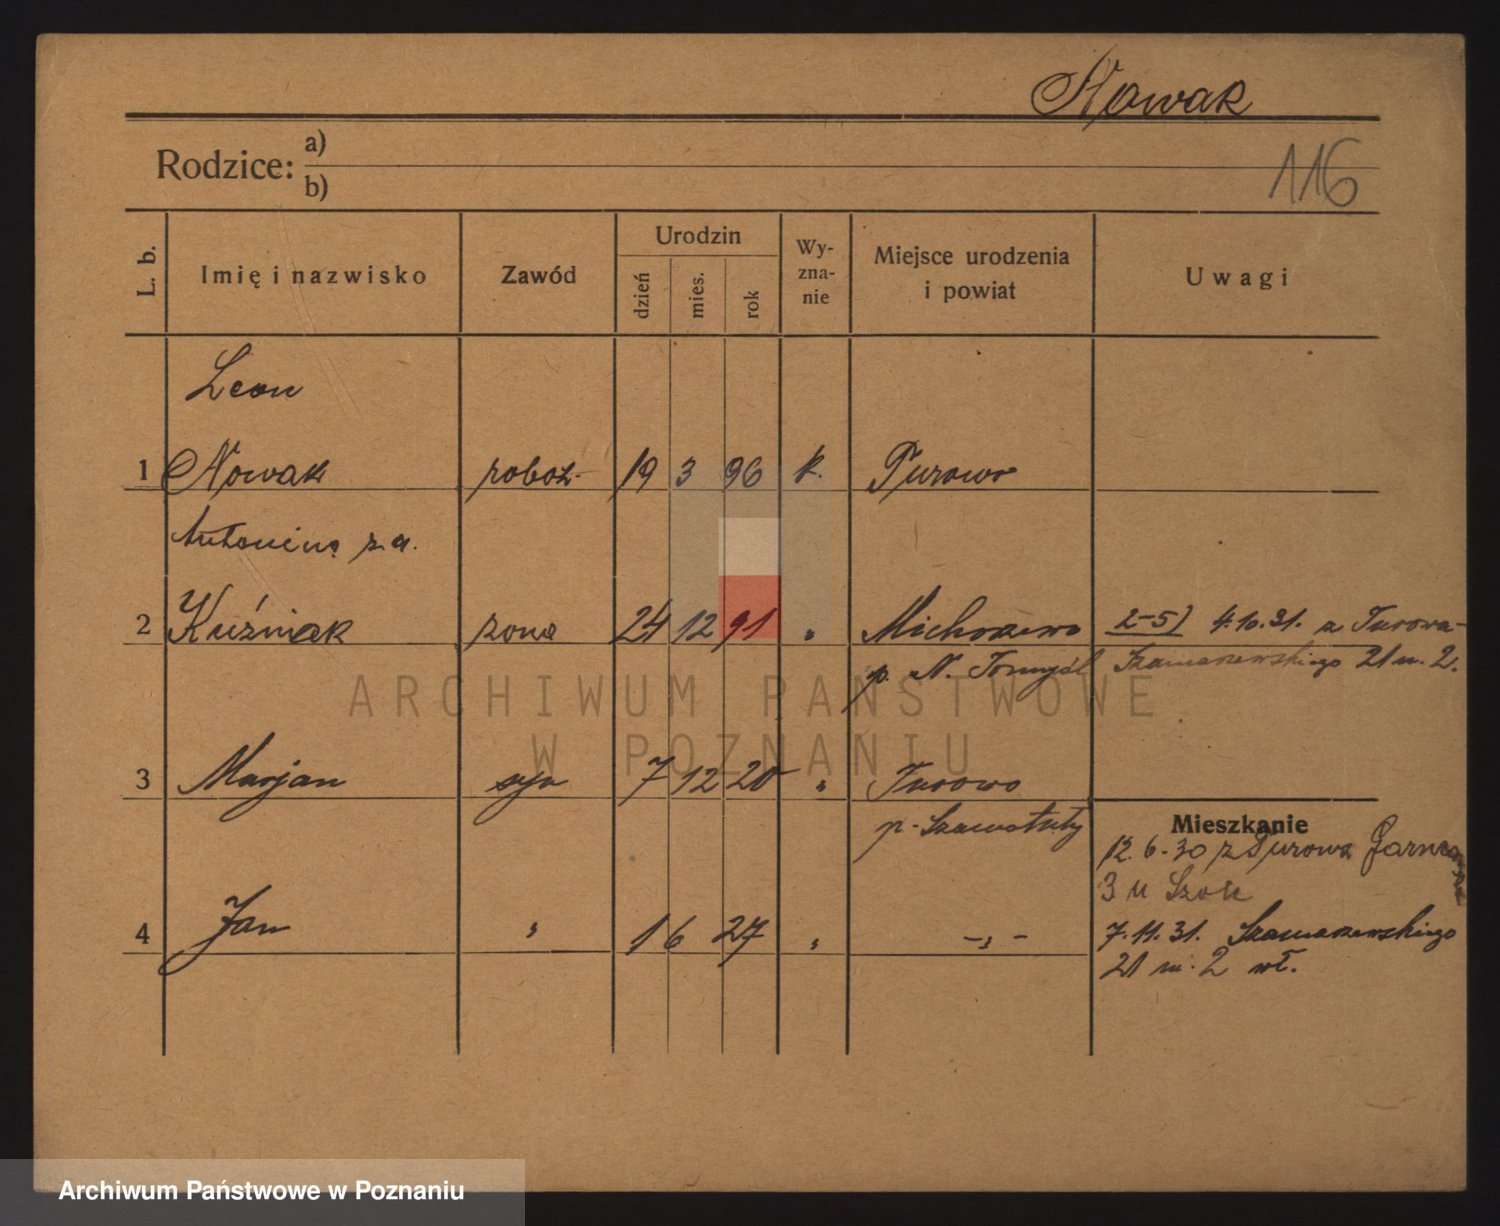 Nowak
Rodzice: a)
b)
116
L. b.
Imię i nazwisko
Zawód
Urodzin
dzień
mies.
rok
Wy-
zna-
nie
Miejsce urodzenia
i powiat
Uwagi
Leon
1 Nowak robot. 19 3 96 k. Turowo
Antonina z d.
2 Kuźniak żona 24 12 91 " Michorzewo 2-5) 4.10.31. z Turowa-
p. N. Tomyśl Szamarzewskiego 21 m. 2.
3 Marjan syn 7 12 20 " Turowo
p. Szamotuły
Mieszkanie
12. 6. 30 z Turowa
3 u
4 Jan " 1 6 27 " -"- 7.11.31. Szamarzewskiego
21 m. 2 wł.
ARCHIWUM PAŃSTWOWE
W POZNANIU
Archiwum Państwowe w Poznaniu